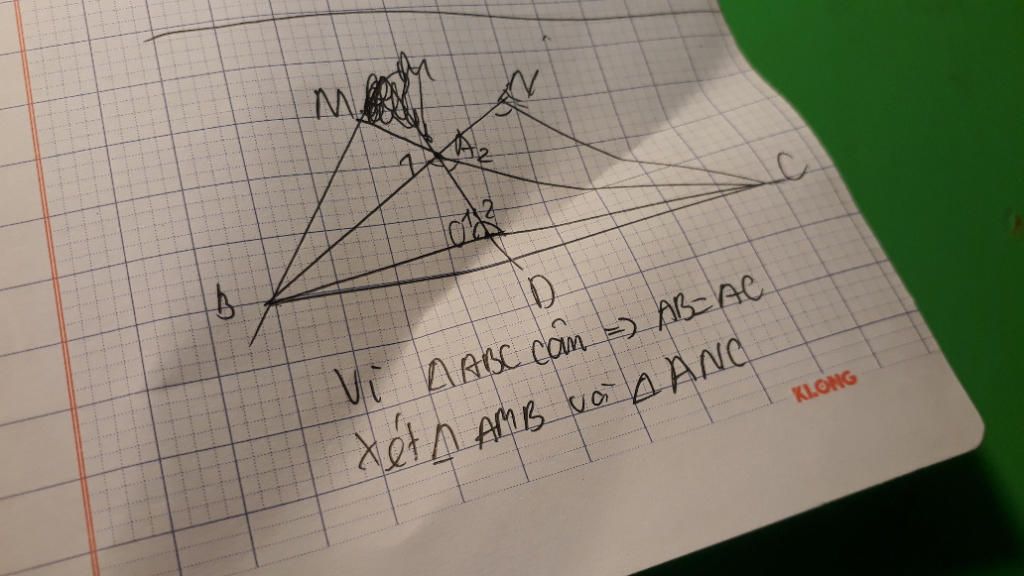 M
N
1 A 2
C
O 1 2
B
D
Vì △ABC cân => AB=AC
Xét △ AMB và △ ANC
KLONG